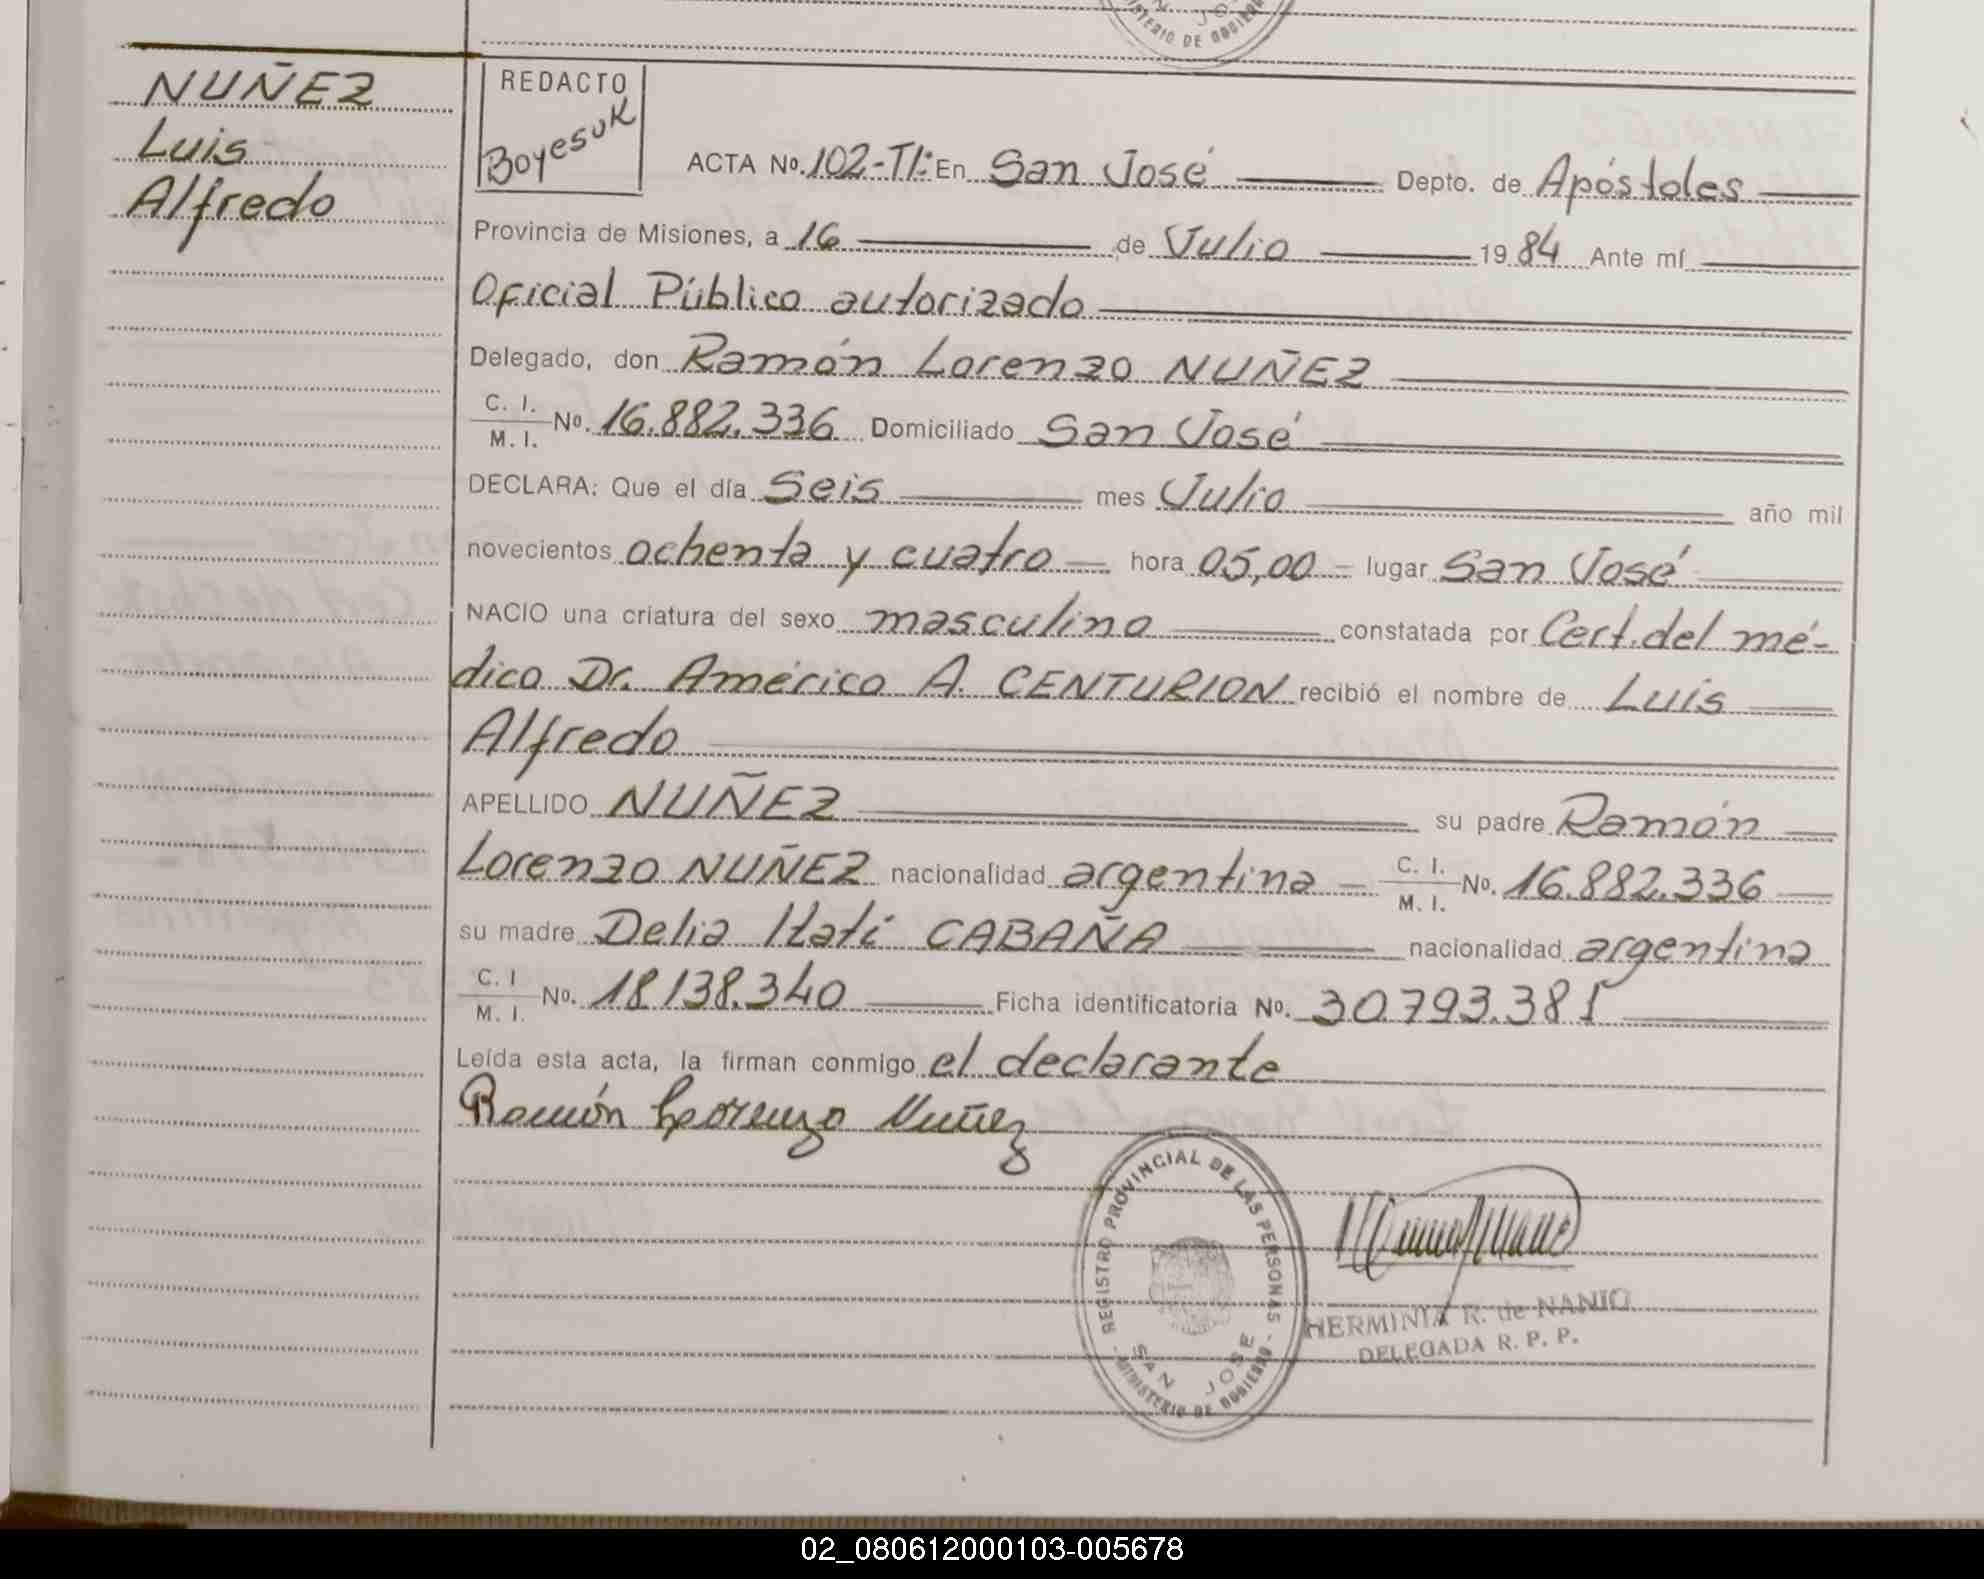 NUÑEZ
Luis
Alfredo
REDACTO
Boyesuk
ACTA Nº. 102-TI: En San José Depto. de Apóstoles
Provincia de Misiones, a 16 de Julio 1984 Ante mí
Oficial Público autorizado
Delegado, don Ramón Lorenzo NUÑEZ
C. I.
M. I. Nº. 16.882.336 Domiciliado San José
DECLARA: Que el día Seis mes Julio año mil
novecientos ochenta y cuatro hora 05,00 lugar San José
NACIO una criatura del sexo masculino constatada por Cert. del mé-
dico Dr. Américo A. CENTURION recibió el nombre de Luis
Alfredo
APELLIDO NUÑEZ su padre Ramón
Lorenzo NUÑEZ nacionalidad argentina C. I.
M. I. Nº. 16.882.336
su madre Delia Itatí CABAÑA nacionalidad argentina
C. I
M. I. Nº. 18.138.340 Ficha identificatoria Nº. 30.793.381
Leída esta acta, la firman conmigo el declarante
Ramón Lorenzo Nuñez
REGISTRO PROVINCIAL DE LAS PERSONAS
SAN JOSE
MINISTERIO DE GOBIERNO
HERMINIA R. de NANIO
DELEGADA R. P. P.
02_080612000103-005678